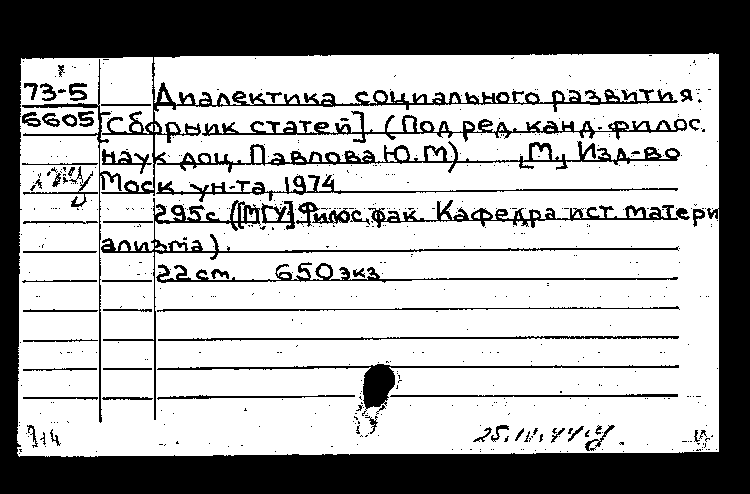 73-5 Диалектика социального развития.
6605 [Сборник статей]. (Под ред. канд. филос.
наук доц. Павлова Ю.М). [М.] Изд-во
Моск. ун-та, 1974.
295с ([МГУ]. Филос. фак. Кафедра ист. матери
ализма).
22 см. 650 экз.